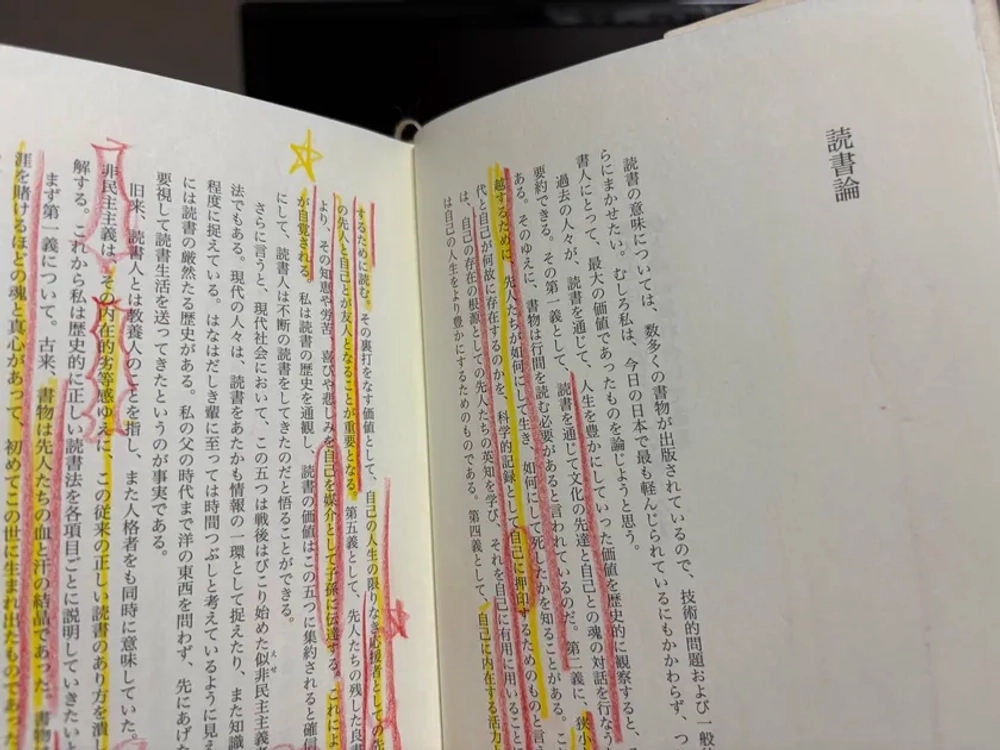 読書論
読書の意味については、数多くの書物が出版されているので、技術的問題および一般
らにまかせたい。むしろ私は、今日の日本で最も軽んじられているにもかかわらず、つ
書人にとって、最大の価値であったものを論じようと思う。
過去の人々が、読書を通じて、人生を豊かにしていった価値を歴史的に観察すると、
要約できる。その第一義として、読書を通じて文化の先達と自己との魂の対話を行なう
ある。そのゆえに、書物は行間を読む必要があると言われているのだ。第二義に、狭小
越するために、先人たちが如何にして生き、如何にして死したかを知ることがある。こ
代と自己が何故に存在するのかを、科学的記録として自己に押印するためのものと言
は、自己の存在の根源としての先人たちの英知を学び、それを自己に有用に用いること
は自己の人生をより豊かにするためのものである。第四義として、自己に内在する活力
するために読む。その裏打をなす価値として、自己の人生の限りなき応援者としての先
の先人と自己とが友人となることが重要となる。第五義として、先人たちの残した良書
より、その知恵や労苦、喜びや悲しみを自己を媒介として子孫に伝達する。これによ
が自覚される。私は読書の歴史を通観し、読書の価値はこの五つに集約されると確信
にして、読書人は不断の読書をしてきたのだと悟ることができる。
さらに言うと、現代社会において、この五つは戦後はびこり始めた似非民主主義
えせ
法でもある。現代の人々は、読書をあたかも情報の一環として捉えたり、また知識
程度に捉えている。はなはだしき輩に至っては時間つぶしと考えているように見え
には読書の厳然たる歴史がある。私の父の時代まで洋の東西を問わず、先にあげた
要視して読書生活を送ってきたというのが事実である。
旧来、読書人とは教養人のことを指し、また人格者をも同時に意味していた。
非民主主義は、その内在的劣等感ゆえに、この従来の正しい読書のあり方を潰し
解する。これから私は歴史的に正しい読書法を各項目ごとに説明していきたいと
まず第一義について。古来、書物は先人たちの血と汗の結晶であった。書物
涯を賭けるほどの魂と真心があって、初めてこの世に生まれ出たものであった